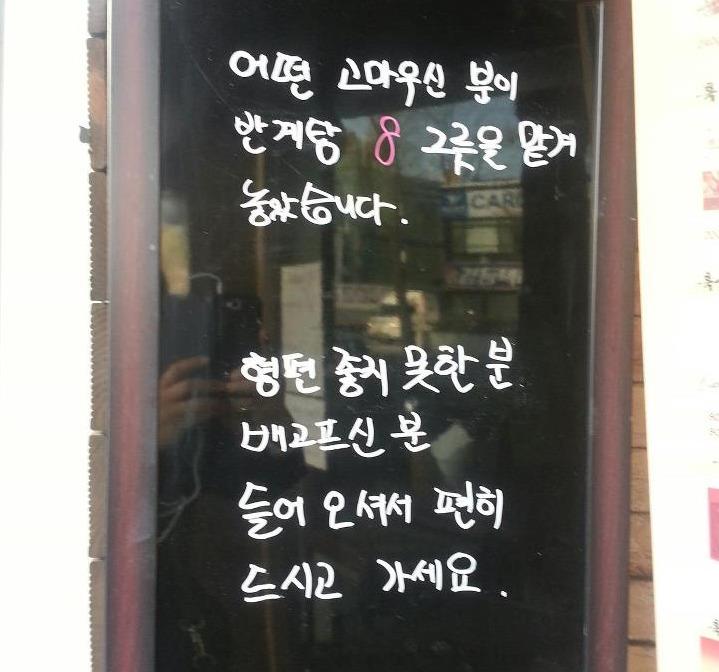 어떤 고마우신 분이
반계탕 8 그릇을 맡겨
놓았습니다.
형편 좋지 못한 분
배고프신 분
들어 오셔서 편히
드시고 가세요.
CAR